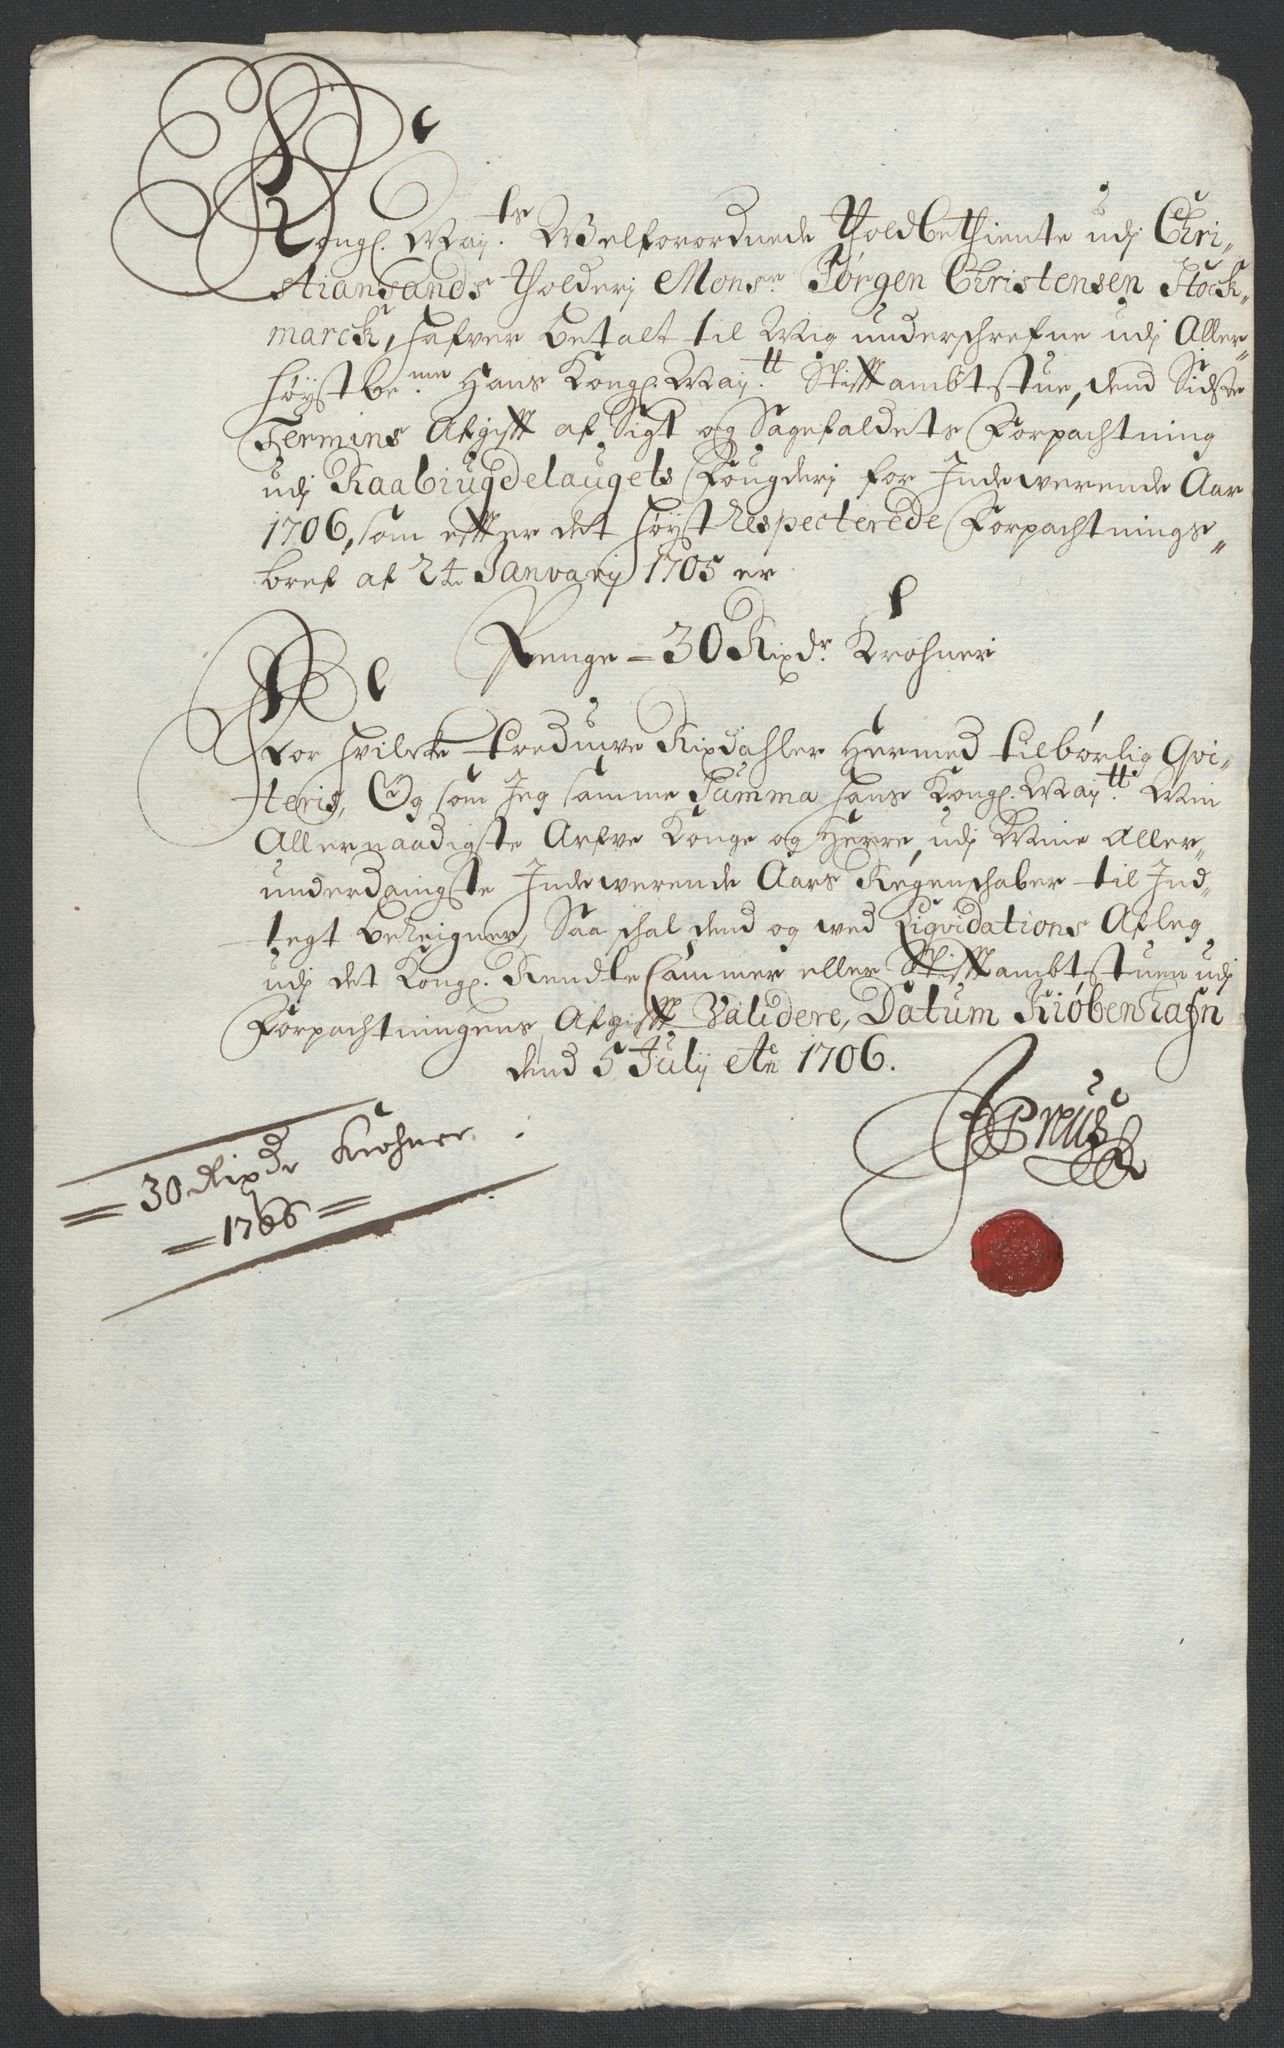 Kongl. May.ts Welforordnede Tholdbethiente udj Chri-
stiansands Tholderj Mons.r Jørgen Christensen Stock-
marck, hafver betalt til Mig underschrefne udj Aller-
høystbe.me Hans Kongl. May.tt Stifft ambtstue, dend Sidste
Termins Afgifft af Sigt og Sagefaldets Forpachtning
udj Raabiugdelaugets Fougderj for Indewerende Aar
1706, som effter det høyst respecterede Forpachtnings-
bref af 24 Januarij 1705 er
Penge = 30 Rixdr. Krohner
For hvilcke trediuve Rixdahler Hermed tilbørlig Qvi-
teris, Og som Jeg samme Summa hans Kongl. May.tt Min
Allernaadigste Arfve Konge og Herre, udj Mine Aller-
underdanigste Indewerende Aars Regenschaber til Ind-
tegt bereigner, Saa schal dend og wed Liqvidations Afleg
udj det Kongl. Rendte Cammer eller Stifft ambtstuen udj
Forpachtningens Afgifft Validere, Datum Kiøbenhafn
dend 5 Julij Ao 1706.
JPreus
= 30 Rixdr Krohner
= 1706 =